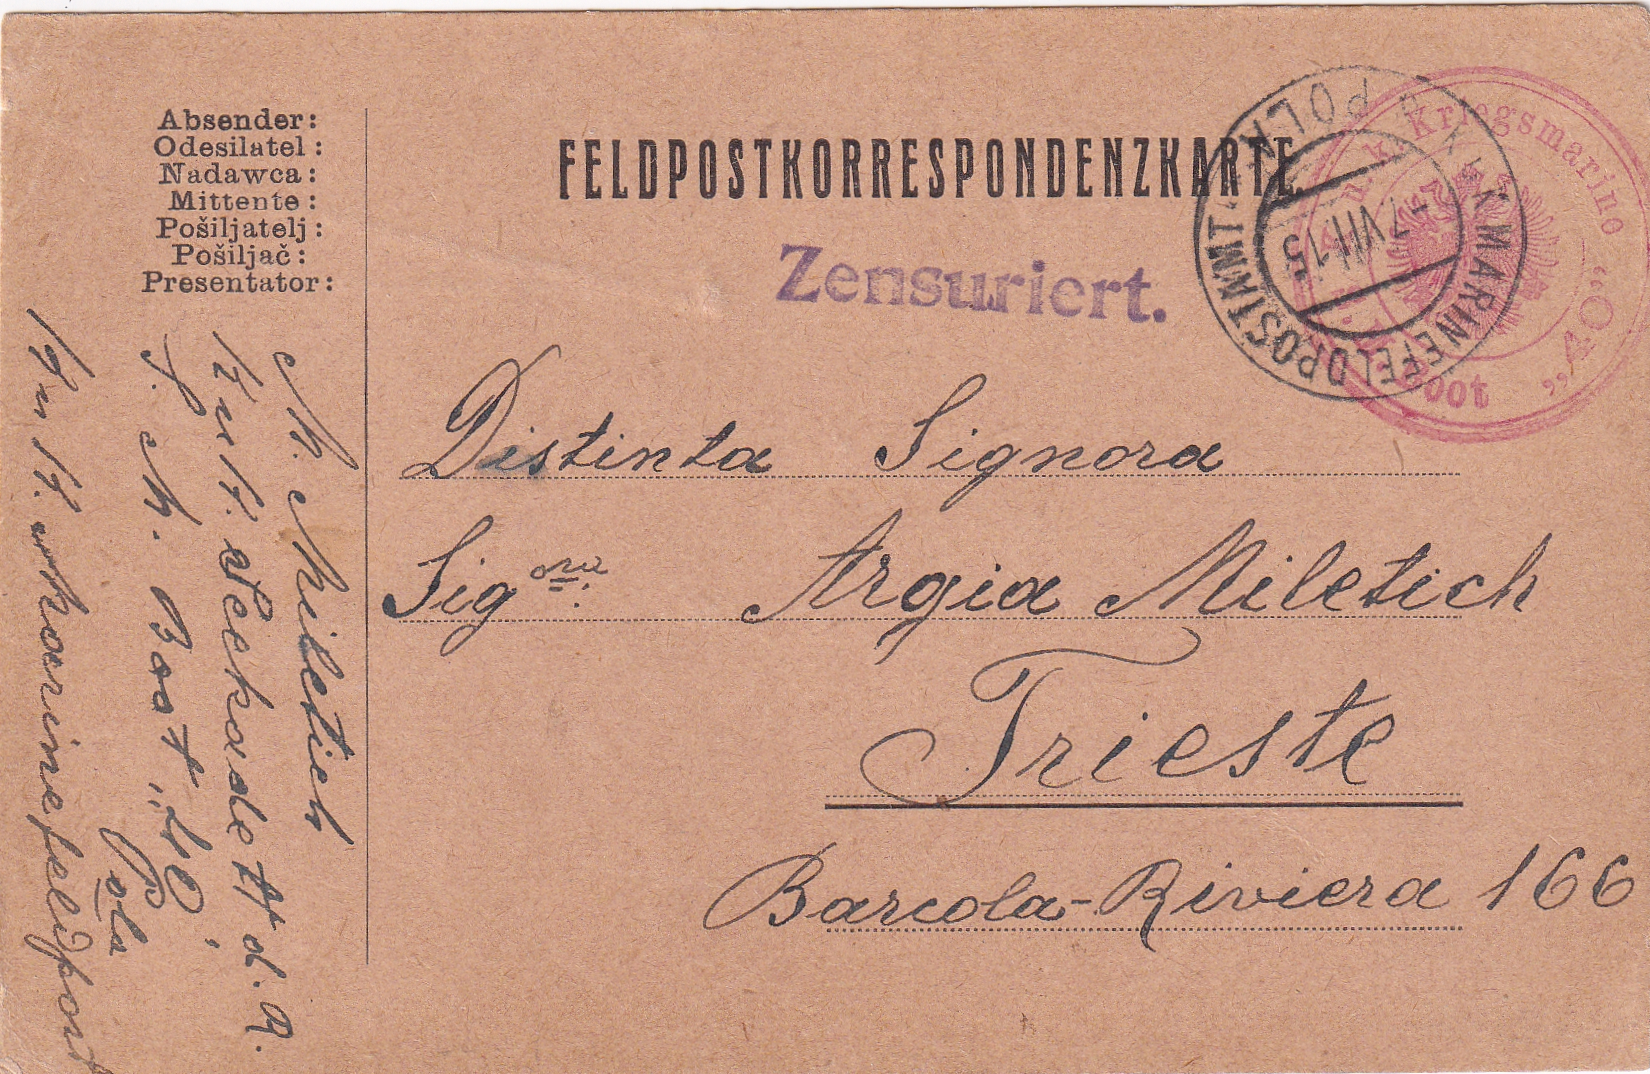 Absender:
Odesilatel:
Nadawca:
Mittente:
Pošiljatelj:
Pošiljač:
Presentator:
FELDPOSTKORRESPONDENZKARTE
Zensuriert.
K.u.K. MARINEFELDPOSTAMT
POLA
-7 VII 15
K. u. k. Kriegsmarine
Boot „40"
Distinta Signora
Sig ora: Argia Miletich
Trieste
Barcola-Riviera 166
M. Miletich
K. u. K. Seekadett d. R.
S. M. Boot „40"
K. u. K. Marinefeldpost
Pola